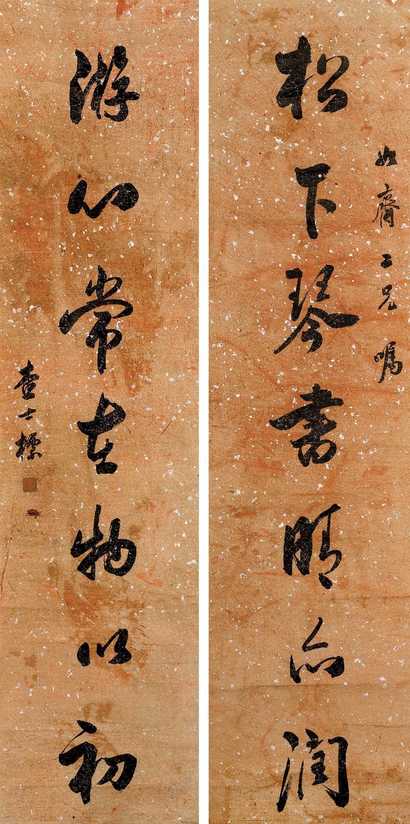 如齋二兄嘱
松下琴書晴亦潤
游心常在物以初
查士標